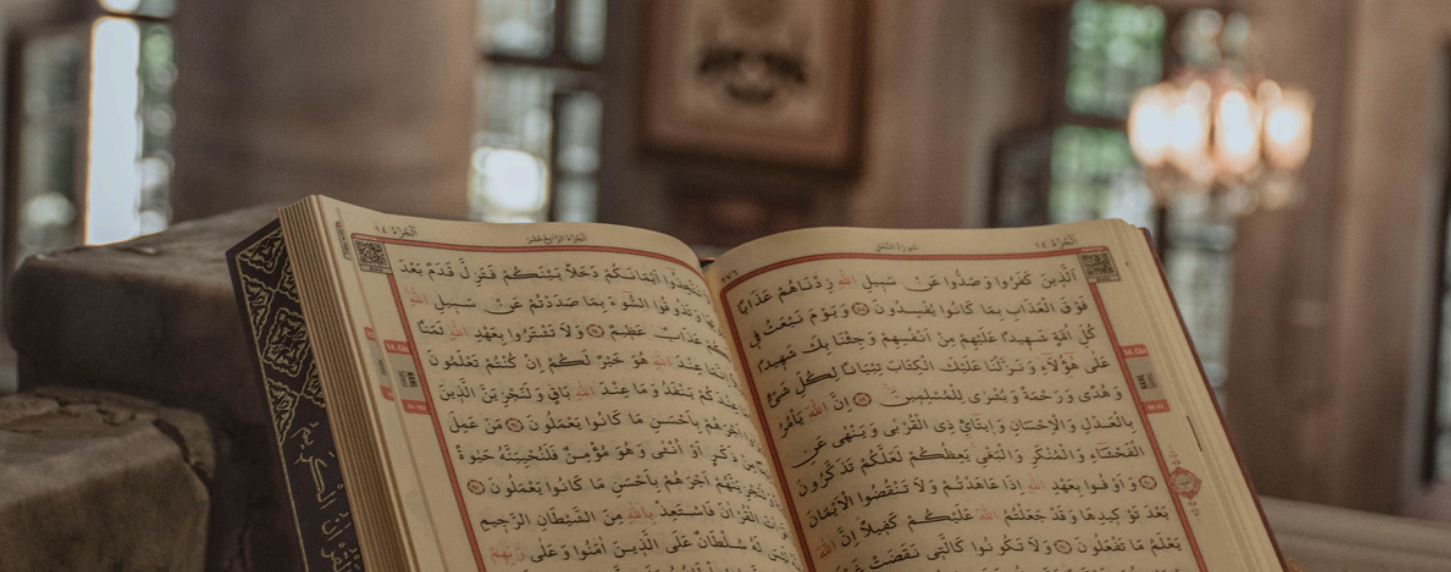 اَلْجُزْءُ ١٤
سُورَةُ النَّحْلِ
اَلَّذِينَ كَفَرُوا وَصَدُّوا عَنْ سَبِيلِ اللهِ زِدْنَاهُمْ عَذَابًا
فَوْقَ الْعَذَابِ بِمَا كَانُوا يُفْسِدُونَ وَيَوْمَ نَبْعَثُ فِي
كُلِّ اُمَّةٍ شَهِيدًا عَلَيْهِمْ مِنْ اَنْفُسِهِمْ وَجِئْنَا بِكَ شَهِيدًا
عَلٰى هٰٓؤُلَٓاءِ وَنَزَّلْنَا عَلَيْكَ الْكِتَابَ تِبْيَانًا لِكُلِّ شَيْءٍ
وَهُدًى وَرَحْمَةً وَبُشْرٰى لِلْمُسْلِمِينَ اِنَّ اللهَ يَأْمُرُ
بِالْعَدْلِ وَالْاِحْسَانِ وَاِيتَٓائِ ذِي الْقُرْبٰى وَيَنْهٰى عَنِ
الْفَحْشَٓاءِ وَالْمُنْكَرِ وَالْبَغْيِ يَعِظُكُمْ لَعَلَّكُمْ تَذَكَّرُونَ
وَاَوْفُوا بِعَهْدِ اللهِ اِذَا عَاهَدْتُمْ وَلَا تَنْقُضُوا الْاَيْمَانَ
بَعْدَ تَوْكِيدِهَا وَقَدْ جَعَلْتُمُ اللهَ عَلَيْكُمْ كَفِيلًا اِنَّ اللهَ
يَعْلَمُ مَا تَفْعَلُونَ وَلَا تَكُونُوا كَالَّتِي نَقَضَتْ
اَلْجُزْءُ الرَّابِعَ عَشَرَ
اَلْجُزْءُ ١٤
اَيْمَانَكُمْ دَخَلًا بَيْنَكُمْ فَتَزِلَّ قَدَمٌ بَعْدَ
وَتَذُوقُوا السُّٓوءَ بِمَا صَدَدْتُمْ عَنْ سَبِيلِ اللهِ
عَذَابٌ عَظِيمٌ وَلَا تَشْتَرُوا بِعَهْدِ اللهِ ثَمَنًا
عِنْدَ اللهِ هُوَ خَيْرٌ لَكُمْ اِنْ كُنْتُمْ تَعْلَمُونَ
عِنْدَكُمْ يَنْفَدُ وَمَا عِنْدَ اللهِ بَاقٍ وَلَنَجْزِيَنَّ الَّذِينَ
اَجْرَهُمْ بِاَحْسَنِ مَا كَانُوا يَعْمَلُونَ مَنْ عَمِلَ
مِنْ ذَكَرٍ اَوْ اُنْثٰى وَهُوَ مُؤْمِنٌ فَلَنُحْيِيَنَّهُ حَيٰوةً
وَلَنَجْزِيَنَّهُمْ اَجْرَهُمْ بِاَحْسَنِ مَا كَانُوا يَعْمَلُونَ
الْقُرْاٰنَ فَاسْتَعِذْ بِاللهِ مِنَ الشَّيْطَانِ الرَّجِيمِ
لَهُ سُلْطَانٌ عَلَى الَّذِينَ اٰمَنُوا وَعَلٰى رَبِّهِمْ